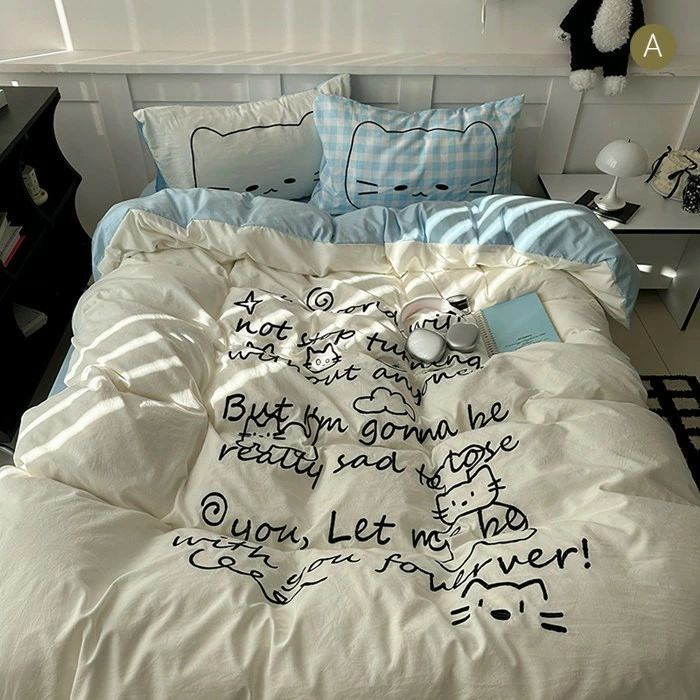 A
world will
not stop turning
without anyone
But I'm gonna be
really sad to lose
you, Let me be
with you forever!